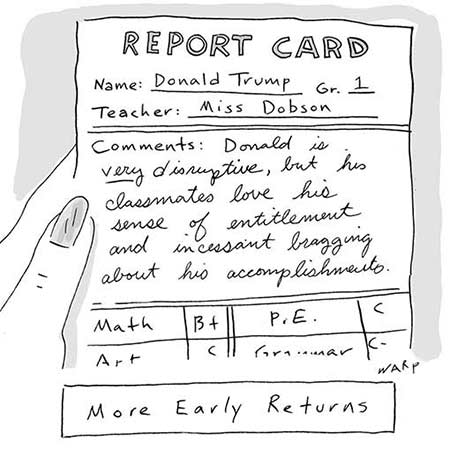 REPORT CARD
Name: Donald Trump Gr. 1
Teacher: Miss Dobson
Comments: Donald is
very disruptive, but his
classmates love his
sense of entitlement
and incessant bragging
about his accomplishments.
Math B+ P.E. C
Art C Grammar C-
WARP
More Early Returns